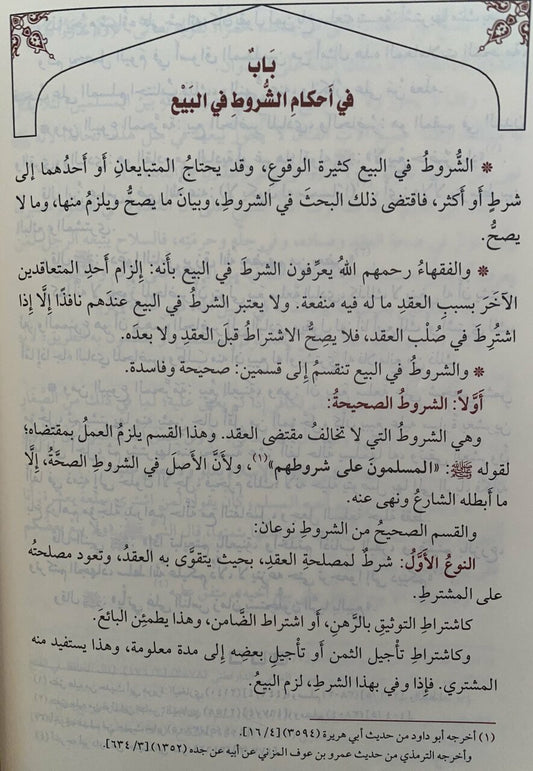 بَابٌ
في أَحكامِ الشُّروطِ في البَيْع
* الشُّروطُ في البيع كثيرة الوقوعِ، وقد يحتاجُ المتبايعانِ أَو أَحدُهما إلى
شرطٍ أَو أَكثر، فاقتضى ذلك البحثَ في الشروطِ، وبيانَ ما يصحُّ ويلزمُ منها، وما لا
يصحُّ.
* والفقهاءُ رحمهم اللهُ يعرِّفون الشرطَ في البيع بأَنه: إِلزام أَحدِ المتعاقدين
الآخَرَ بسببِ العقدِ ما له فيه منفعة. ولا يعتبر الشرطُ في البيع عندَهم نافذًا إلَّا إِذا
اشتُرِطَ في صُلْب العقد، فلا يصِحُّ الاشتراطُ قبلَ العقدِ ولا بعدَه.
* والشروطُ في البيع تنقسمُ إِلى قسمين: صحيحة وفاسدة.
أَوَّلاً: الشروطُ الصحيحةُ:
وهي الشروطُ التي لا تخالفُ مقتضى العقد. وهذا القسم يلزمُ العملُ بمقتضاه؛
لقوله ﷺ: «المسلمونَ على شروطهم»(١)، ولأَنَّ الأَصلَ في الشروطِ الصحَّةُ، إِلَّا
ما أَبطله الشارعُ ونهى عنه.
والقسم الصحيحُ من الشروطِ نوعان:
النوعُ الأَوَّلُ: شرطٌ لمصلحةِ العقدِ، بحيث يتقوَّى به العقدُ، وتعود مصلحتُه
على المشترطِ.
كاشتراطِ التوثيقِ بالرَّهنِ، أَو اشتراط الضَّامن، وهذا يطمئِن البائعَ.
وكاشتراطِ تأْجيل الثمن أَو تأْجيلِ بعضِه إِلى مدة معلومة، وهذا يستفيد منه
المشتري. فإِذا وفى بهذا الشرطِ، لزم البيعُ.
(١) أخرجه أبو داود من حديث أبي هريرة (٣٥٩٤) [١٦/٤].
وأخرجه الترمذي من حديث عمرو بن عوف المزني عن أبيه عن جده (١٣٥٢) [٦٣٤/٣].